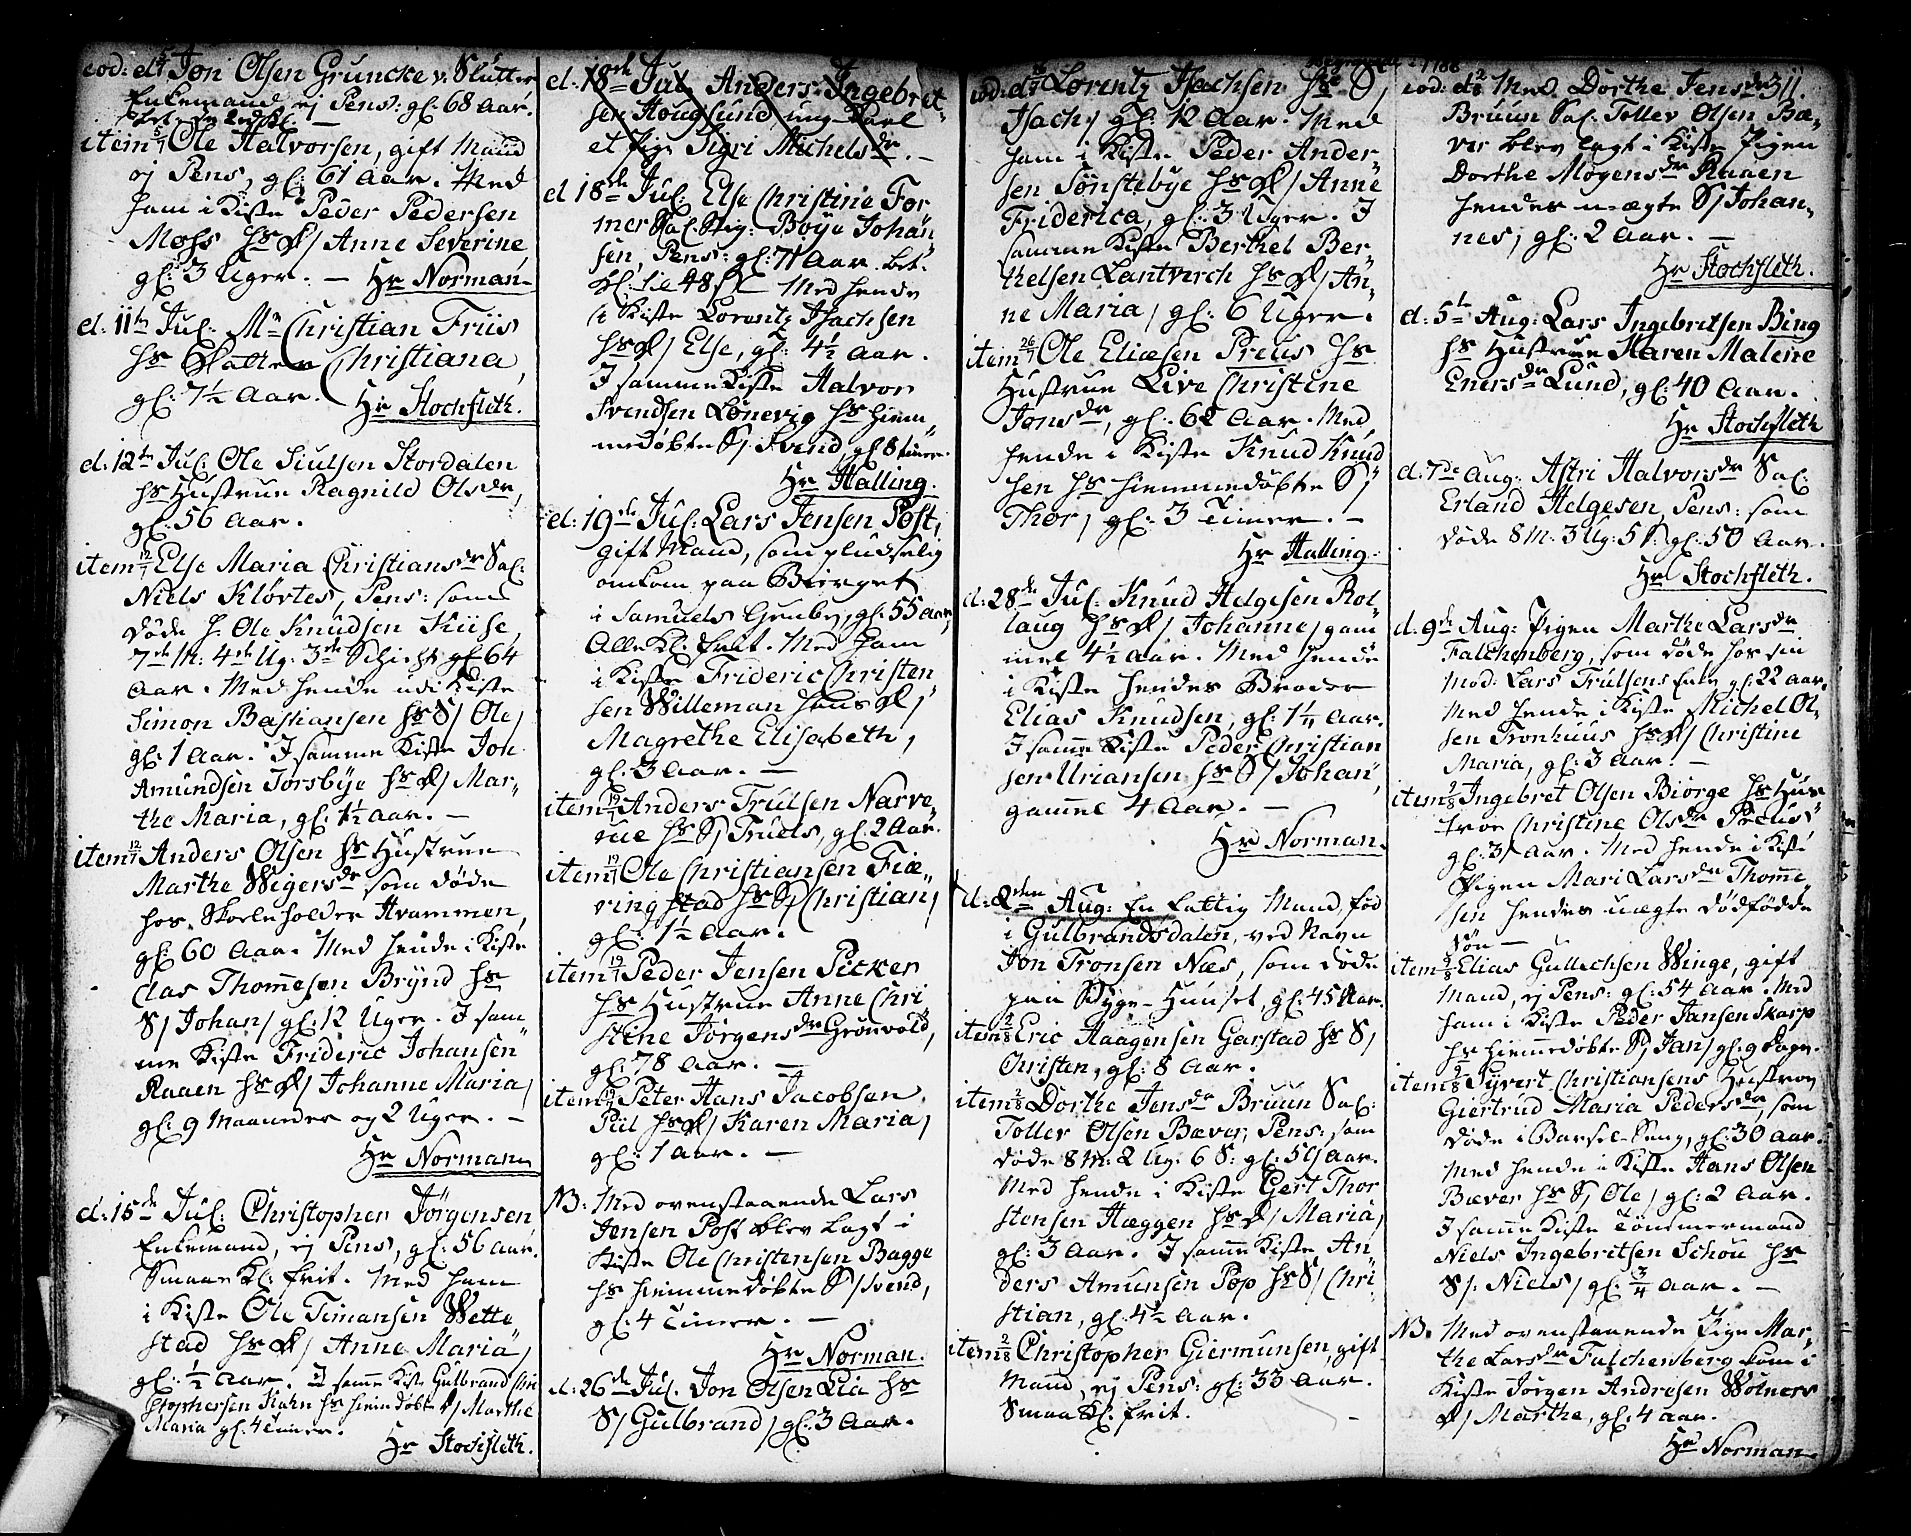 eod: d 5/7 Jon Olsen Gruncke v. Slutter
Enkemand ej Pens: gl: 68 Aar.
item 5/7 Ole Halvorsen, gift Mand
ej Pens, gl: 61 Aar. Med
ham i Kiste Peder Pedersen
Moss hs D/ Anne Severine,
gl: 3 Uger. — Hr Norman
d: 11te Jul: Mr Christian Friis
hs Datter Christiana,
gl: 7½ Aar. Hr Stochfleth.
d: 12te Jul: Ole Siulsen Stordalen
hs Hustrue Ragnild Olsdr,
gl: 56 Aar.
item 12/7 Else Maria Christiansdr Sal:
Niels Kløvtes, Pens: som
døde h. Ole Knudsen Kiise,
7de M: 4de Ug: 3de Schicht gl: 64
Aar. Med hende udi Kiste
Simon Bastiansen hs S/ Ole/
gl: 1 Aar. I samme Kiste Jon
Amundsen Torsbye hs D/ Mar-
the Maria, gl: 1½ Aar. —
item 12/7 Anders Olsen hs Hustrue
Marthe Wigersdr som døde
hos Skoeleholder Hvammen,
gl: 60 Aar. Med hende i Kiste
Clas Thommesen Brynd hs
S/ Johan/ gl: 12 Uger. I sam
me Kiste Frideric Johansen
Raaen hs D/ Johanne Maria/
gl: 9 Maaneder og 2 Uger. —
Hr Norman
d: 15de Jul: Christopher Jørgensen
Enkemand, ej Pens, gl: 56 Aar.
Smaae Kl: frit. Med ham
i Kiste Ole Timansen Wette
stad hs D/ Anne Maria,
gl: ½ Aar. I samme Kiste Gulbrand Chri
stophersen Hahn hs hiemdøbte D/ Marthe
Maria gl: 4 Timer. Hr Stochfleth.
d. 18de Jul. Anders Ingebret-
sen Hougsund, ung Karl
et Pige Sigri Michelsdr. —
d 18de Jul: Else Christine For
mer Sal. Stig: Boye Johan
sen, Pens: gl: 71 Aar. bet:
Kl: til 48 s. Med hende
i Kiste Lorentz Isachsen
hs D/ Else, gl: 4½ Aar.
I samme Kiste Halvor
Svendsen Lønevig hs hiem
medøbte S/ Svend, gl 8 timer.
Hr Halling.
d: 19de Jul: Lars Jensen Post,
gift Mand, som pludselig
omkom paa Bierget
i Samuels Grube, gl: 55 Aar,
Alle Kl: frit. Med ham
i Kiste Frideric Christen
sen Willeman hans D/
Magrethe Elisabeth,
gl: 3 Aar. —
item 19/7 Anders Trulsen Narve
rue hs S/ Truels, gl: 2 Aar.
item 19/7 Ole Christiansen Fiæ-
ringstad hs S/ Christian/
gl: 1½ Aar.
item 19/7 Peder Jensen Picker
hs Hustrue Anne Chri
stine Jørgensdr Grønvold,
gl: 78 Aar. —
item 19/7 Peter Hans Jacobsen
Piil hs D/ Karen Maria/
gl: 1 Aar. —
NB: Med ovenstaaende Lars
Jensen Post blev lagt i
Kiste Ole Christensen Bagge
hs hiemmedøbte S/ Svend,
gl: 4 Timer. —
Hr Norman.
d: 26de Jul. Jon Olsen Lia hs
S/ Gulbrand/ gl: 3 Aar.
1788
eod: d Lorentz Isachsen hs S/
Isach/ gl: 12 Aar. Med
ham i Kiste Peder Ander-
sen Sønstebye hs D/ Anne
Friderica, gl: 3 Uger. I
samme Kiste Berthel Ber-
thelsen Lantverch hs D/ An-
ne Maria/ gl: 6 Uger.
item 26/7 Ole Eliæsen Preus hs
Hustrue Live Christine
Jonsdr, gl: 62 Aar. Med
hende i Kiste Knud Knud
sen hs hiemmedøbte S/
Thor/ gl: 3 Timer. —
Hr Halling.
d: 28de Jul: Knud Helgesen Bol-
laug hs D/ Johanne/ gam
mel 4½ Aar. Med hende
i Kiste hendes Broder
Elias Knudsen, gl: 1¼ Aar.
I samme Kiste Peder Christian
sen Uriansen hs S/ Johan,
gammel 4 Aar. —
Hr Norman.
d: 2den Aug: En fattig Mand, fød
i Gulbrandsdalen, ved Navn
Jon Tronsen Næs, som døde
paa Syge-Huuset, gl: 45 Aar.
item 2/8 Eric Haagensen Garstad hs S/
Christen, gl: 8 Aar.
item 2/8 Dorthe Jensdr Bruun Sal:
Toller Olsen Bæver, Pens: som
døde 8 M: 2 Ug: 6 S: gl: 50 Aar.
Med hende i Kiste Gert Thor
stensen Hæggen hs D/ Maria/
gl: 3 Aar. I samme Kiste An
ders Amunsen Pop hs S/ Chri
stian, gl: 4½ Aar.
item 2/8 Christopher Giermunsen, gift
Mand, ej Pens: gl: 33 Aar.
Smaa Kl: frit. —
eod: d 2/8 Med Dorthe Jensdr 311.
Bruun Sal: Tollev Olsen Bæ-
ver blev lagt i Kiste Pigen
Dorthe Mogensdr Raaen
hendes uægte S/ Johan-
nes, gl: 2 Aar. —
Hr Stochfleth.
d: 5te Aug: Lars Ingebretsen Bing
hs Hustrue Karen Malene
Enersdr Lund, gl: 40 Aar.
Hr Stochfleth
d: 7de Aug: Astri Halvorsdr Sal:
Erland Helgesen, Pens: som
døde 8 M: 3 Ug: 5 S: gl: 50 Aar.
Hr Stochfleth.
d: 9de Aug: Pigen Marthe Larsdr
Falchenberg, som døde hos sin
Mod: Lars Trulsens Enke gl: 22 Aar.
Med hende i Kiste Michel Ol-
sen Tronhuus hs D/ Christine
Maria, gl: 3 Aar. —
item 9/8 Ingebret Olsen Biørge hs Hus
troe Christine Olsdr Preus
gl: 31 Aar. Med hende i Kiste
Pigen Mari Larsdr Thomme
sen hendes uægte dødfødde
Søn —
item 9/8 Elias Gullichsen Winge, gift
Mand, ej Pens: gl: 54 Aar. Med
ham i Kiste Peder Jansen Skarp
hs hiemmedøbte S/ Jan/ gl: 9 Dage.
item 9/8 Syvert Christiansens Hustroe
Giertrud Maria Pedersdr, som
døde i Barsel-Seng, gl: 30 Aar.
Med hende i Kiste Hans Olsen
Bæver hs S/ Ole/ gl: 2 Aar.
I samme Kiste Tømmermand
Niels Ingebritsen Schou hs
S/. Niels/ gl: ¾ Aar. —
NB. Med ovenstaaende Pige Mar-
the Larsdr Falchenberg kom i
Kiste Jørgen Andresen Wølners
D/ Marthe, gl: 4 Aar.
Hr Norman